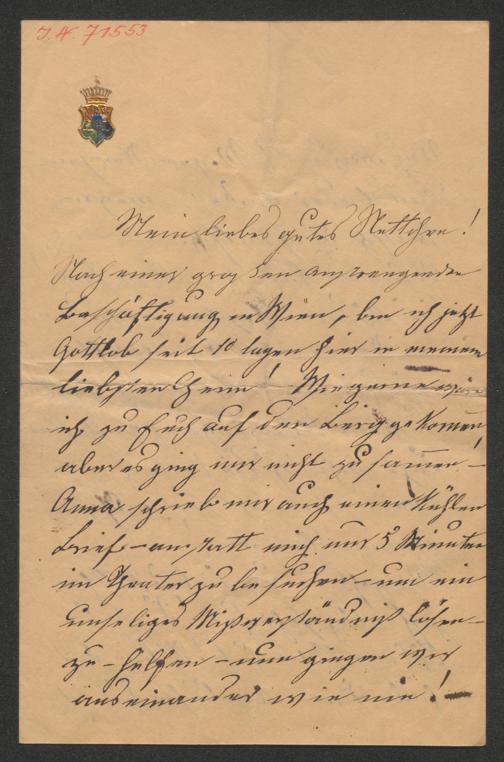 J.N. 71553
Mein liebes gutes Nettchen!
Nach einer großen anstrengenden
Beschäftigung in Wien, bin ich jetzt
Gottlob seit 10 Tagen hier in meinem
liebsten Heim! Wie gerne wäre
ich zu Euch auf den Berg gekommen
aber es ging mir nicht zusammen –
Anna schrieb mir auch einen kühlen
Brief – anstatt mich nur 5 Minuten
im Theater zu besuchen – um ein
unseliges Mißverständniß lösen –
zu – helfen – nun gingen wir
auseinander wie nie! –